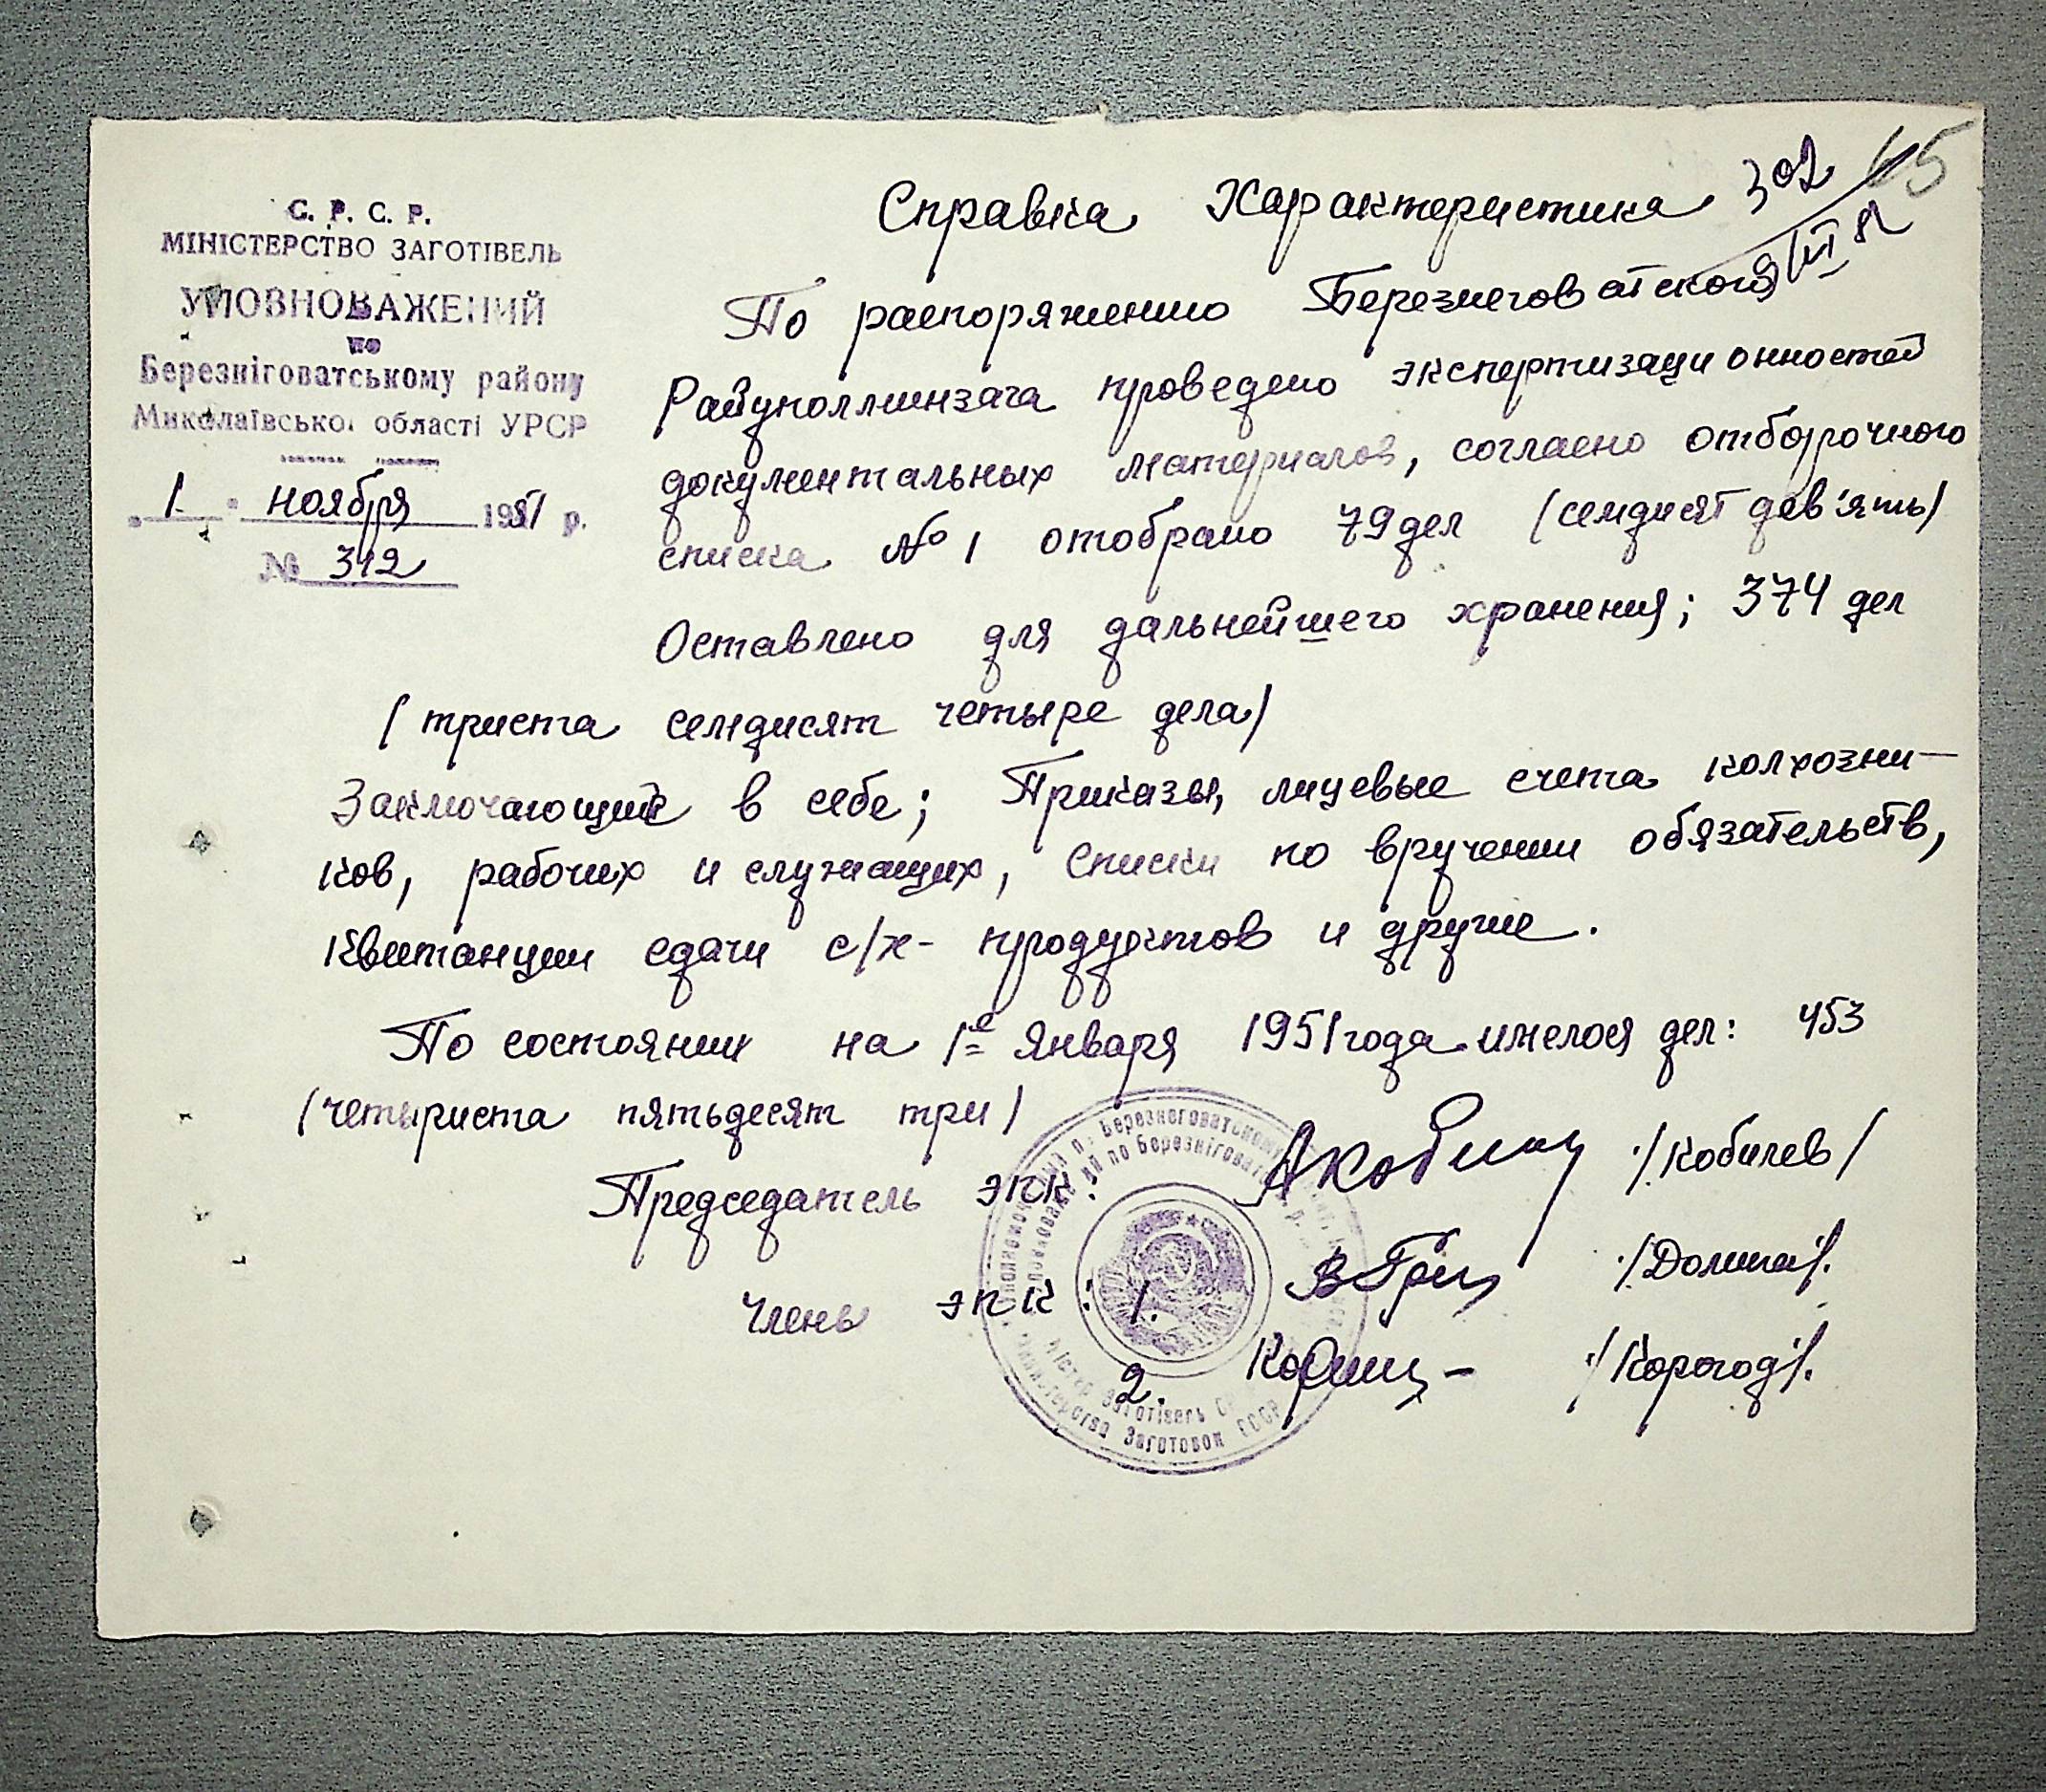 С. Р. С. Р.
МІНІСТЕРСТВО ЗАГОТІВЕЛЬ
УПОВНОВАЖЕНИЙ
по
Березніговатському району
Миколаївської області УРСР
" 1 " ноября 1951 р.
№ 312
65
302
Справка Характеристика
По распоряжению Березнеговатского
Райуполминзага проведено экспертизационностей
документальных материалов, согласно отборочного
списка № 1 отобрано 79 дел /семдисят дев'ять/
Оставлено для дальнейшего хранения; 374 дел
/триста семдисят четыре дела/
Заключающие в себе; Приказы, лицевые счета колхозни-
ков, рабочих и служащих, списки по вручении обязательств,
квитанции сдачи с/х- продуктов и другие.
По состоянии на 1е января 1951 года имелося дел: 453
/четыриста пятьдесят три/
Председатель ЭПК: /Кобилев/
Члены ЭПК: 1. /Долина/.
2. /Корогод/.
Министерство Заготовок СССР